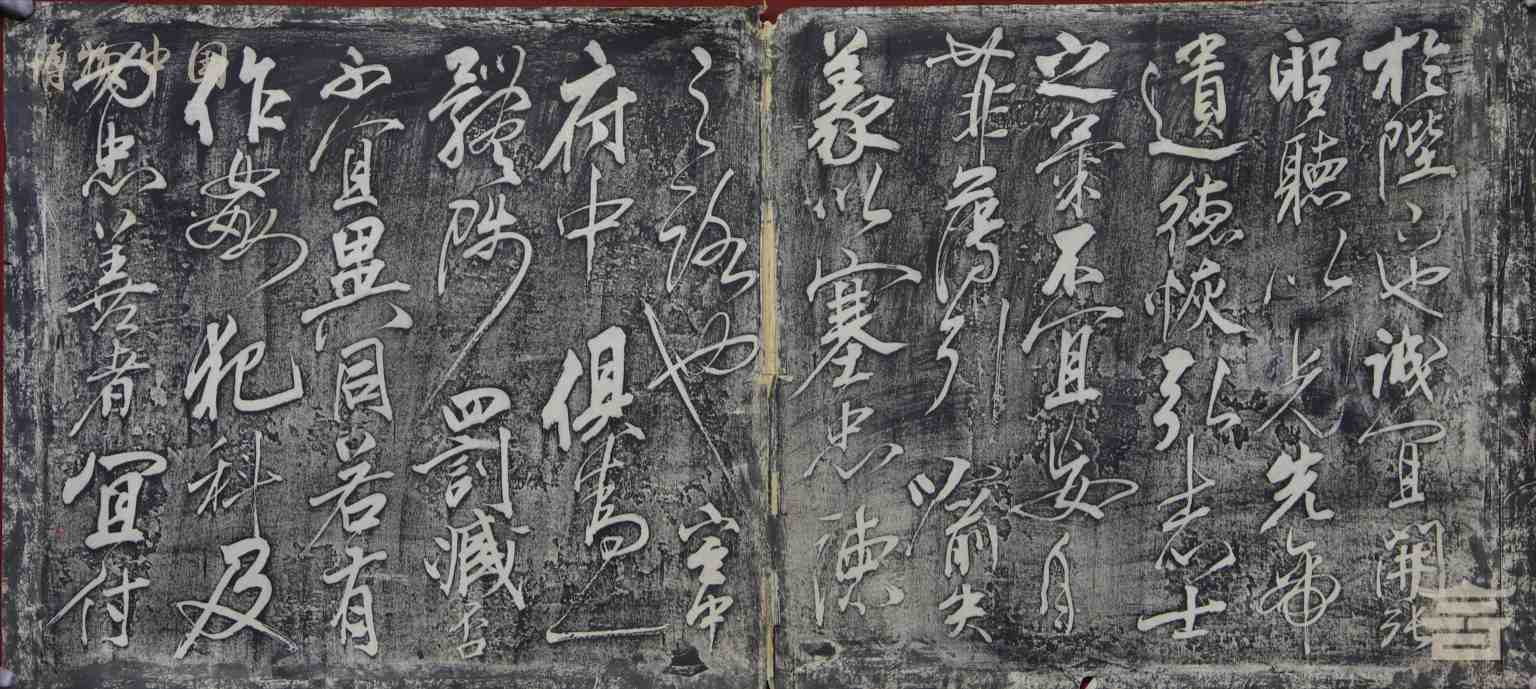 於陛下也誠宜開張
聖聽以光先帝
遺德恢弘志士
之氣不宜妄自
菲薄引喻失
義以塞忠諫
之路也宮中
府中俱為一
體陟罰臧否
不宜異同若有
作姦犯科及
為忠善者宜付
博物中国